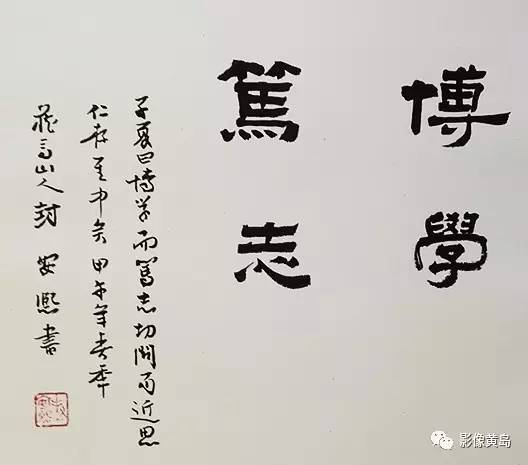 博學
篤志
子夏曰博学而篤志切問而近思
仁在其中矣 甲午年春季
藏马山人封安熙書
影像黄岛